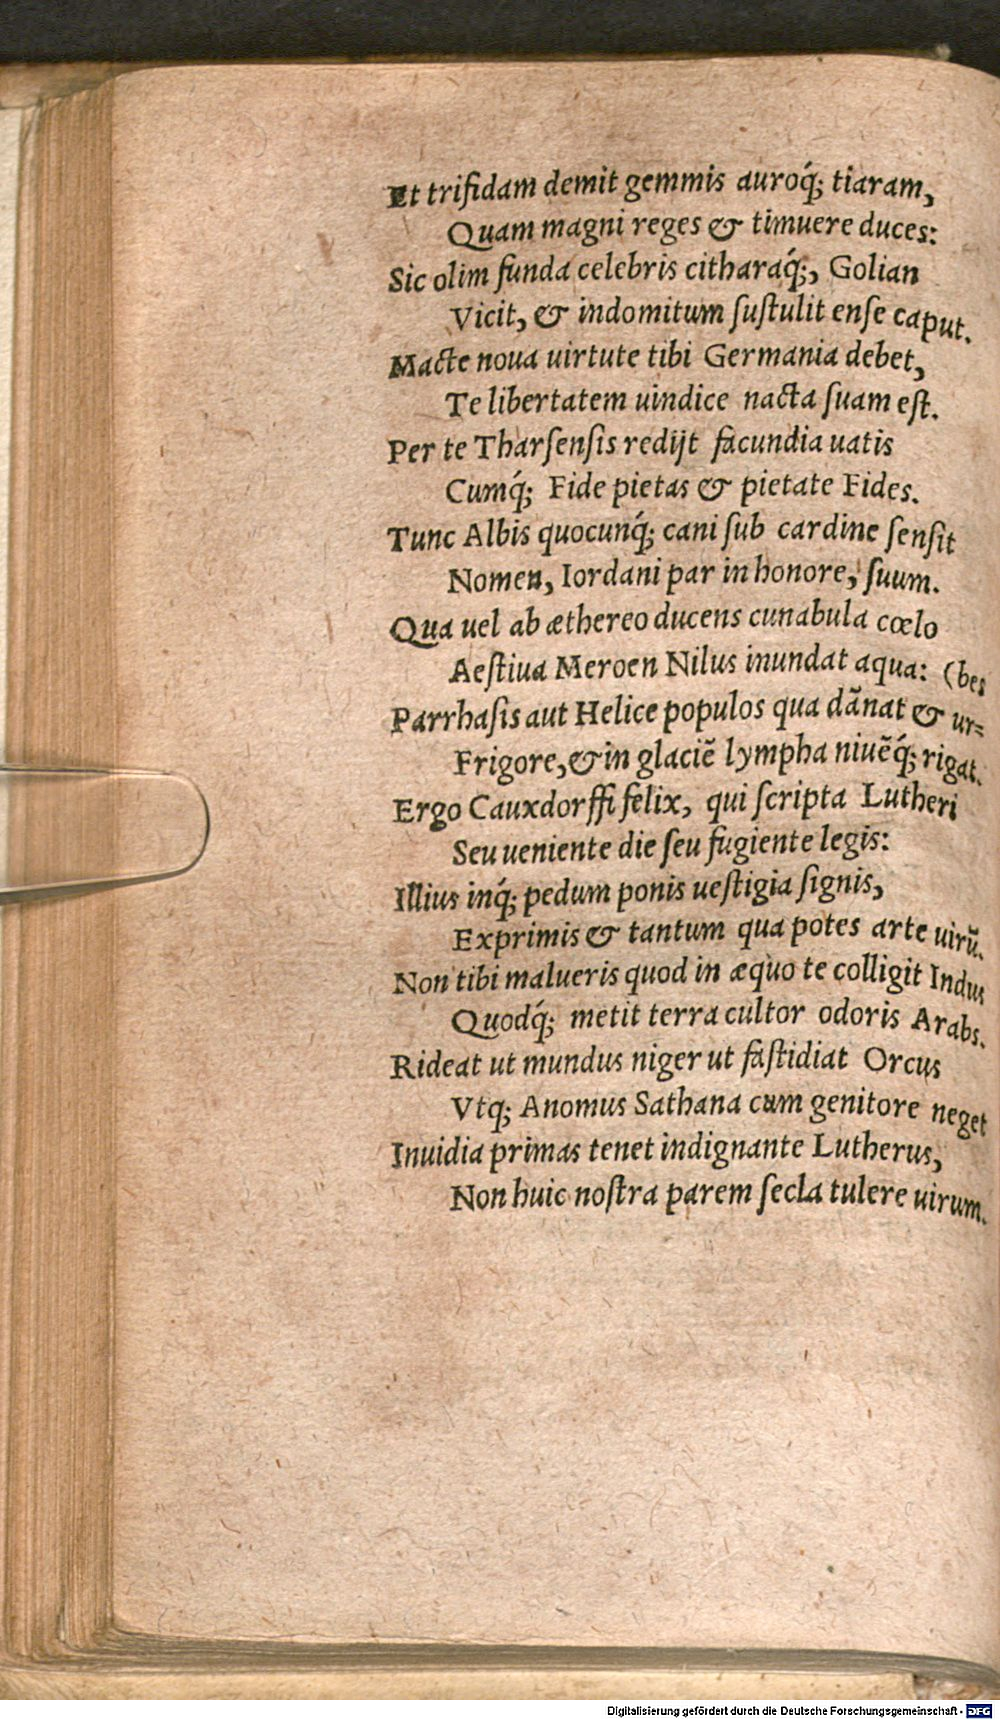 Et trifidam demit gemmis auroq́; tiaram,
Quam magni reges & timuere duces:
Sic olim funda celebris citharaq́;, Golian
Vicit, & indomitum ſuſtulit enſe caput.
Macte noua uirtute tibi Germania debet,
Te libertatem uindice nacta ſuam eſt.
Per te Tharſenſis redijt facundia uatis
Cumq́; Fide pietas & pietate Fides.
Tunc Albis quocunq́; cani ſub cardine ſenſit
Nomen, Iordani par in honore, ſuum.
Qua uel ab æthereo ducens cunabula cœlo
Aeſtiua Meroen Nilus inundat aqua: (bes
Parrhaſis aut Helice populos qua dãnat & ur-
Frigore, & in glaciẽ lympha niuẽq́; rigat.
Ergo Cauxdorffi felix, qui ſcripta Lutheri
Seu ueniente die ſeu fugiente legis:
Illius inq́; pedum ponis ueſtigia ſignis,
Exprimis & tantum qua potes arte uirũ.
Non tibi malueris quod in æquo te colligit Indus
Quodq́; metit terra cultor odoris Arabs.
Rideat ut mundus niger ut faſtidiat Orcus
Vtq; Anomus Sathana cum genitore neget
Inuidia primas tenet indignante Lutherus,
Non huic noſtra parem ſecla tulere uirum.
Digitalisierung gefördert durch die Deutsche Forschungsgemeinschaft - DFG